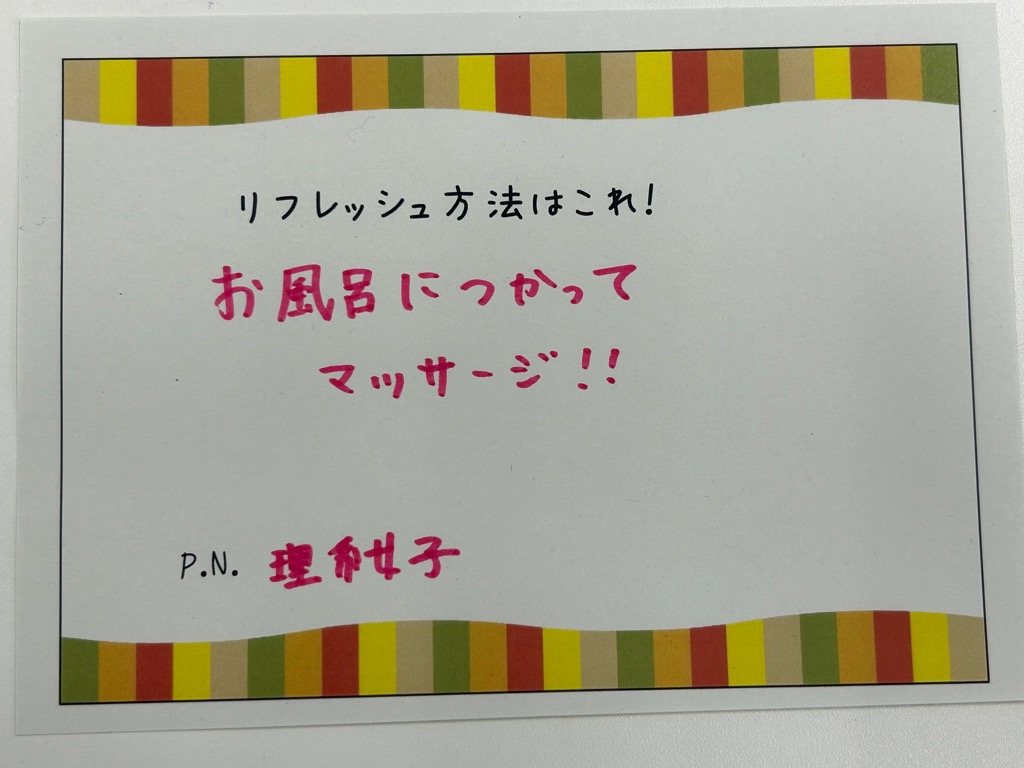 リフレッシュ方法はこれ!
お風呂につかって
マッサージ!!
P.N. 理系女子